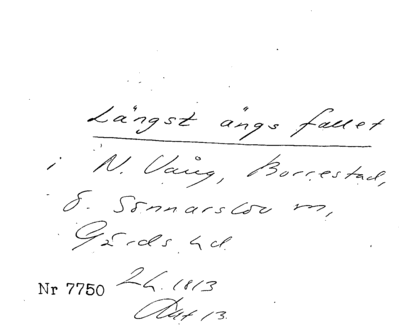 Längst ängs fallet
i N. Vång, Borrestad,
Ö. Sönnarslöv m,
Gärds hd.
Nr 7750 2h. 1813
Akt 13.